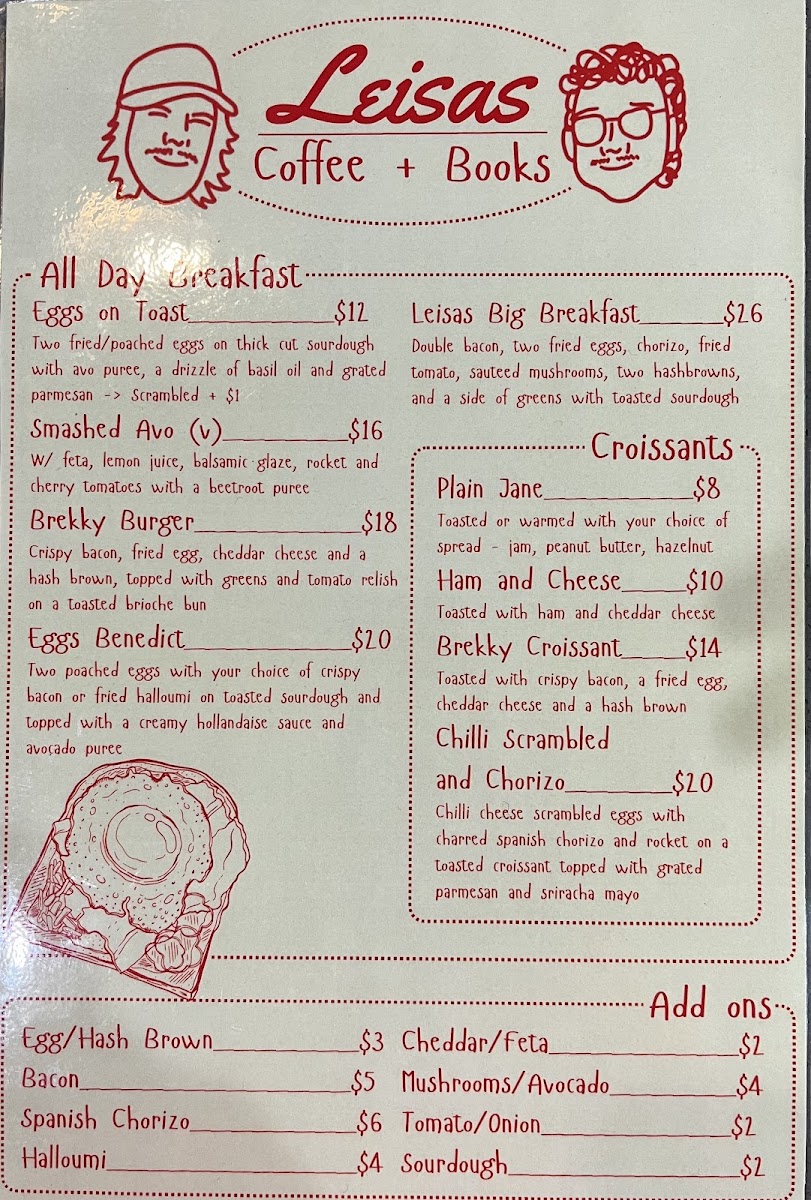 Leisas
Coffee + Books
All Day Breakfast
Eggs on Toast $12
Two fried/poached eggs on thick cut sourdough
with avo puree, a drizzle of basil oil and grated
parmesan -> Scrambled + $1
Smashed Avo (v) $16
W/ feta, lemon juice, balsamic glaze, rocket and
cherry tomatoes with a beetroot puree
Brekky Burger $18
Crispy bacon, fried egg, cheddar cheese and a
hash brown, topped with greens and tomato relish
on a toasted brioche bun
Eggs Benedict $20
Two poached eggs with your choice of crispy
bacon or fried halloumi on toasted sourdough and
topped with a creamy hollandaise sauce and
avocado puree
Leisas Big Breakfast $26
Double bacon, two fried eggs, chorizo, fried
tomato, sauteed mushrooms, two hashbrowns,
and a side of greens with toasted sourdough
Croissants
Plain Jane $8
Toasted or warmed with your choice of
spread - jam, peanut butter, hazelnut
Ham and Cheese $10
Toasted with ham and cheddar cheese
Brekky Croissant $14
Toasted with crispy bacon, a fried egg,
cheddar cheese and a hash brown
Chilli Scrambled
and Chorizo $20
Chilli cheese scrambled eggs with
charred spanish chorizo and rocket on a
toasted croissant topped with grated
parmesan and sriracha mayo
Add ons
Egg/Hash Brown $3
Bacon $5
Spanish Chorizo $6
Halloumi $4
Cheddar/Feta $2
Mushrooms/Avocado $4
Tomato/Onion $2
Sourdough $2